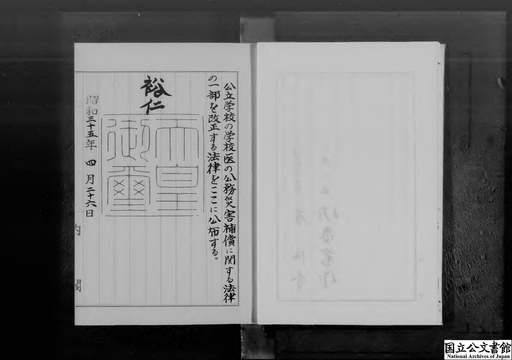 公立学校の学校医の公務災害補償に関する法律
の一部を改正する法律をここに公布する。
裕仁
天皇
御璽
昭和三十五年四月二十六日
内閣
国立公文書館
National Archives of Japan